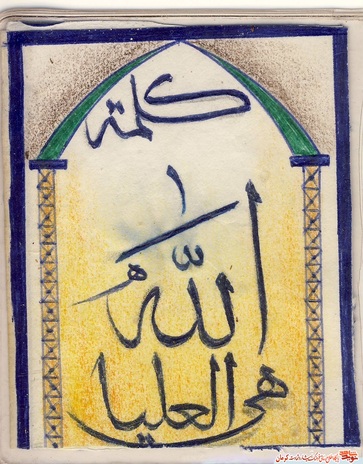 كلمة
الله
هي العليا